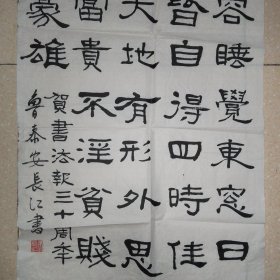 容睡覺東窗日
皆自得四時佳
天地有形外思
富貴不淫貧賤
豪雄
賀書法報三十周年
魯泰安長江書